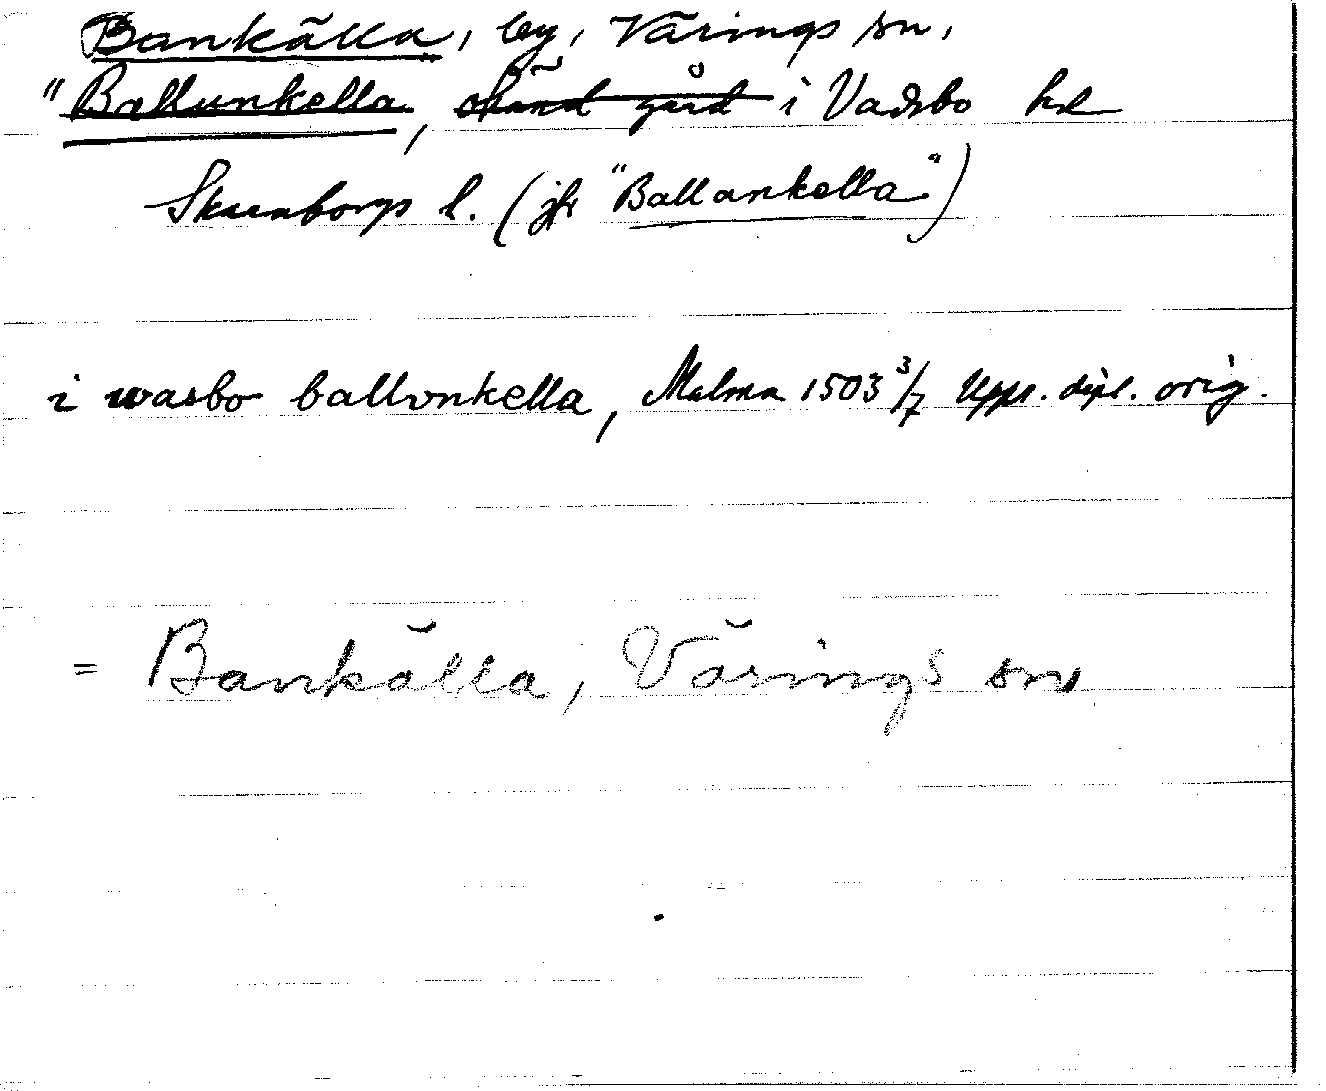 Bankälla, by, Värings sn,
"Ballunkella, okänd gård i Vadsbo hd
Skaraborgs l. (jfr "Ballankella")
i wasbo ballvnkella, Malma 1503 3/7 Upps. dipl. orig.
= Bankälla, Värings sn